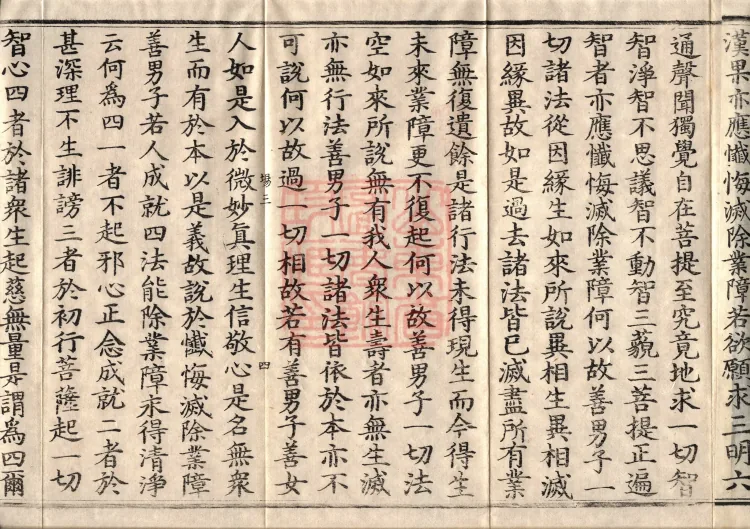 漢果亦應懺悔滅除業障若欲願求三明六
通聲聞獨覺自在菩提至究竟地求一切智
智淨智不思議智不動智三藐三菩提正遍
智者亦應懺悔滅除業障何以故善男子一
切諸法從因緣生如來所說異相生異相滅
因緣異故如是過去諸法皆已滅盡所有業
障無復遺餘是諸行法未得現生而今得生
未來業障更不復起何以故善男子一切法
空如來所說無有我人衆生壽者亦無生滅
亦無行法善男子一切諸法皆依於本亦不
可說何以故過一切相故若有善男子善女
場三 四
人如是入於微妙眞理生信敬心是名無衆
生而有於本以是義故說於懺悔滅除業障
善男子若人成就四法能除業障永得清淨
云何爲四一者不起邪心正念成就二者於
甚深理不生誹謗三者於初行菩薩起一切
智心四者於諸衆生起慈無量是謂爲四爾